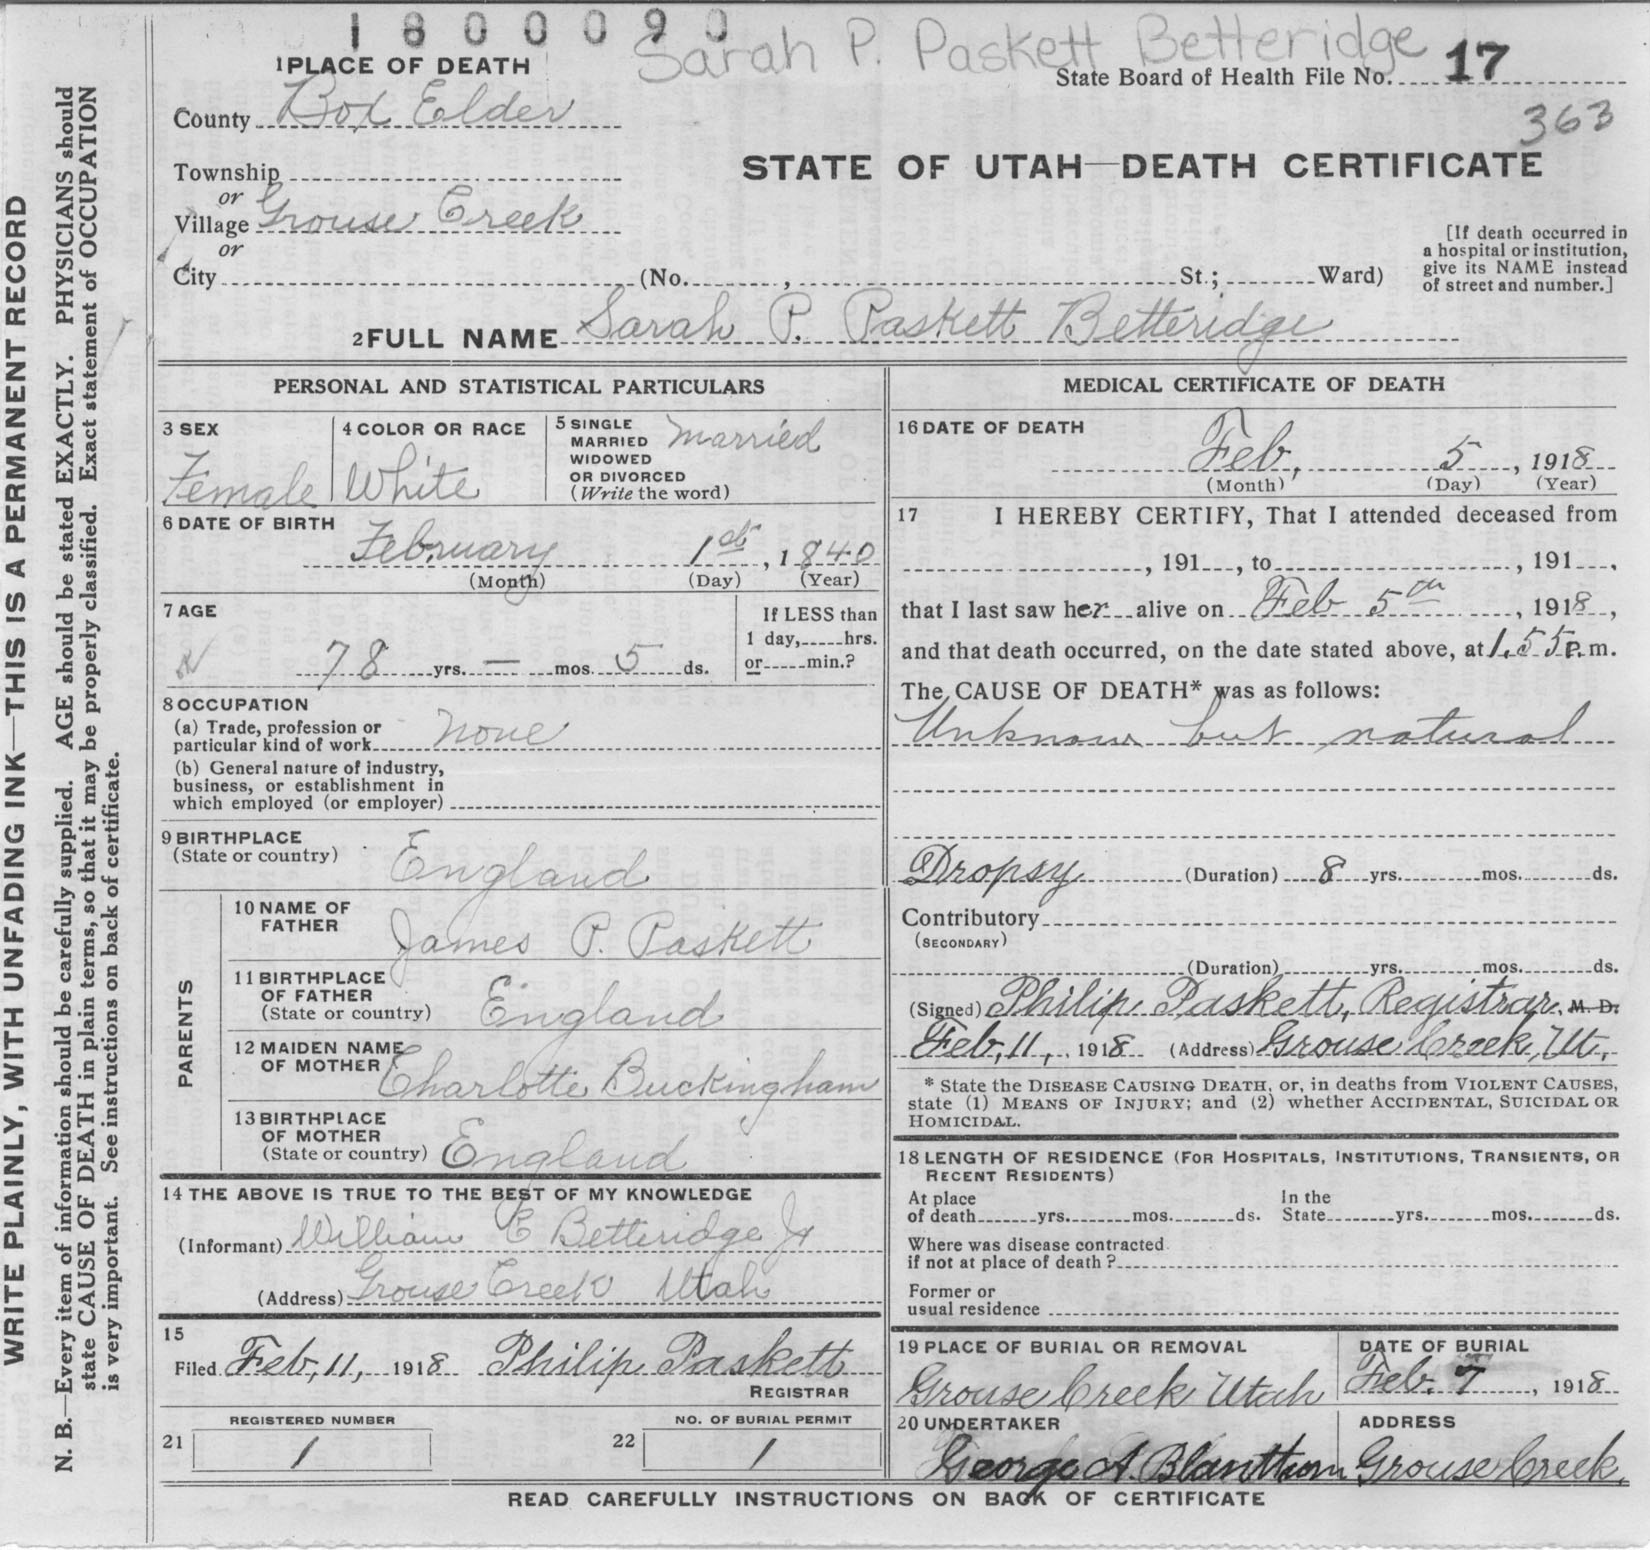 1800090
Sarah P. Paskett Betteridge
1 PLACE OF DEATH
State Board of Health File No. 17
363
County Box Elder
STATE OF UTAH—DEATH CERTIFICATE
Township
or
Village Grouse Creek
or
City (No. , St.; Ward)
[If death occurred in
a hospital or institution,
give its NAME instead
of street and number.]
2 FULL NAME Sarah P. Paskett Betteridge
PERSONAL AND STATISTICAL PARTICULARS
3 SEX
Female
4 COLOR OR RACE
White
5 SINGLE
MARRIED
WIDOWED
OR DIVORCED
(Write the word)
Married
6 DATE OF BIRTH
February 1st, 1840
(Month) (Day) (Year)
7 AGE
78 yrs. — mos. 5 ds.
If LESS than
1 day, hrs.
or min.?
8 OCCUPATION
(a) Trade, profession or
particular kind of work none
(b) General nature of industry,
business, or establishment in
which employed (or employer)
9 BIRTHPLACE
(State or country)
England
PARENTS
10 NAME OF
FATHER
James P. Paskett
11 BIRTHPLACE
OF FATHER
(State or country) England
12 MAIDEN NAME
OF MOTHER
Charlotte Buckingham
13 BIRTHPLACE
OF MOTHER
(State or country) England
14 THE ABOVE IS TRUE TO THE BEST OF MY KNOWLEDGE
(Informant) William C Betteridge Jr
(Address) Grouse Creek Utah
15
Filed Feb, 11, 1918 Philip Paskett
REGISTRAR
REGISTERED NUMBER
21 1
NO. OF BURIAL PERMIT
22 1
MEDICAL CERTIFICATE OF DEATH
16 DATE OF DEATH
Feb, 5, 1918
(Month) (Day) (Year)
17 I HEREBY CERTIFY, That I attended deceased from
, 191 , to , 191 ,
that I last saw her alive on Feb 5th, 1918,
and that death occurred, on the date stated above, at 1.55 P.m.
The CAUSE OF DEATH* was as follows:
Unknown but natural
Dropsy (Duration) 8 yrs. mos. ds.
Contributory
(SECONDARY)
(Duration) yrs. mos. ds.
(Signed) Philip Paskett, Registrar, M. D.
Feb, 11, 1918 (Address) Grouse Creek, Ut,
* State the DISEASE CAUSING DEATH, or, in deaths from VIOLENT CAUSES,
state (1) MEANS OF INJURY; and (2) whether ACCIDENTAL, SUICIDAL OR
HOMICIDAL.
18 LENGTH OF RESIDENCE (FOR HOSPITALS, INSTITUTIONS, TRANSIENTS, OR
RECENT RESIDENTS)
At place
of death yrs. mos. ds.
In the
State yrs. mos. ds.
Where was disease contracted
if not at place of death?
Former or
usual residence
19 PLACE OF BURIAL OR REMOVAL
Grouse Creek Utah
DATE OF BURIAL
Feb. 7, 1918
20 UNDERTAKER
George A. Blanthorn
ADDRESS
Grouse Creek,
READ CAREFULLY INSTRUCTIONS ON BACK OF CERTIFICATE
WRITE PLAINLY, WITH UNFADING INK—THIS IS A PERMANENT RECORD
N. B.—Every item of information should be carefully supplied. AGE should be stated EXACTLY. PHYSICIANS should
state CAUSE OF DEATH in plain terms, so that it may be properly classified. Exact statement of OCCUPATION
is very important. See instructions on back of certificate.